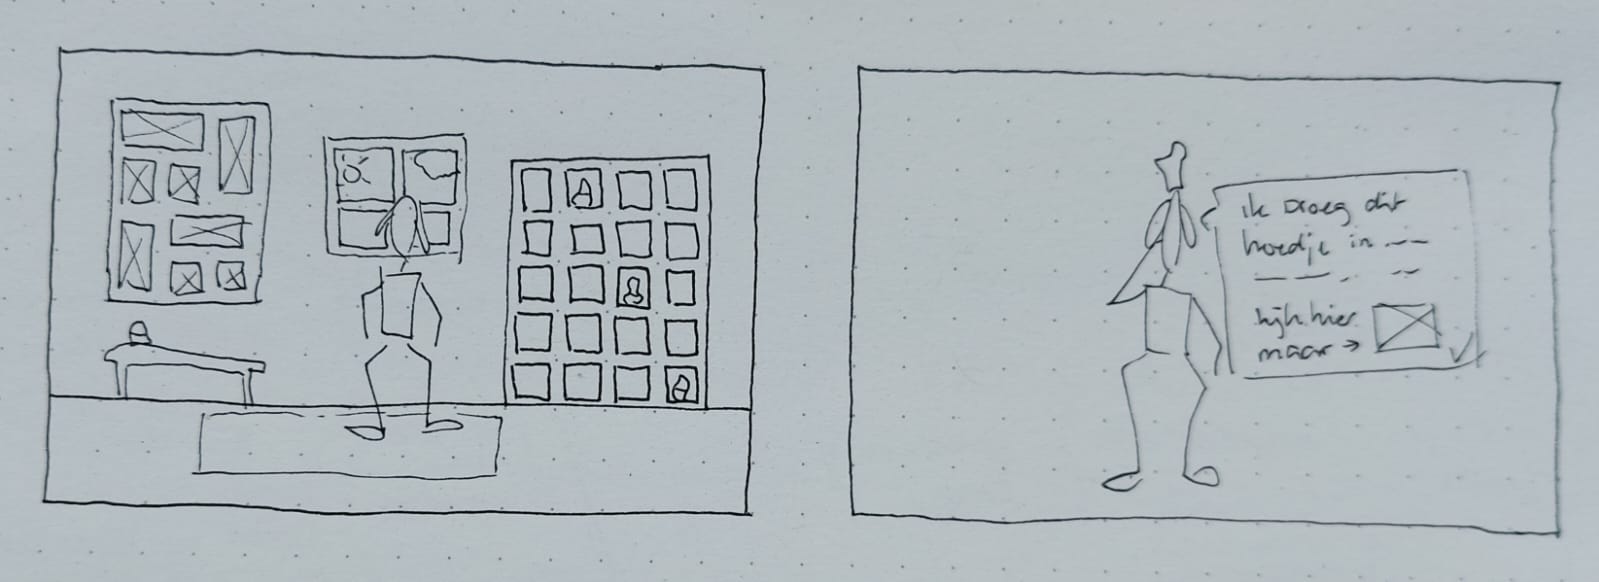 ik droeg dit
hoedje in
kijk hier
maar →